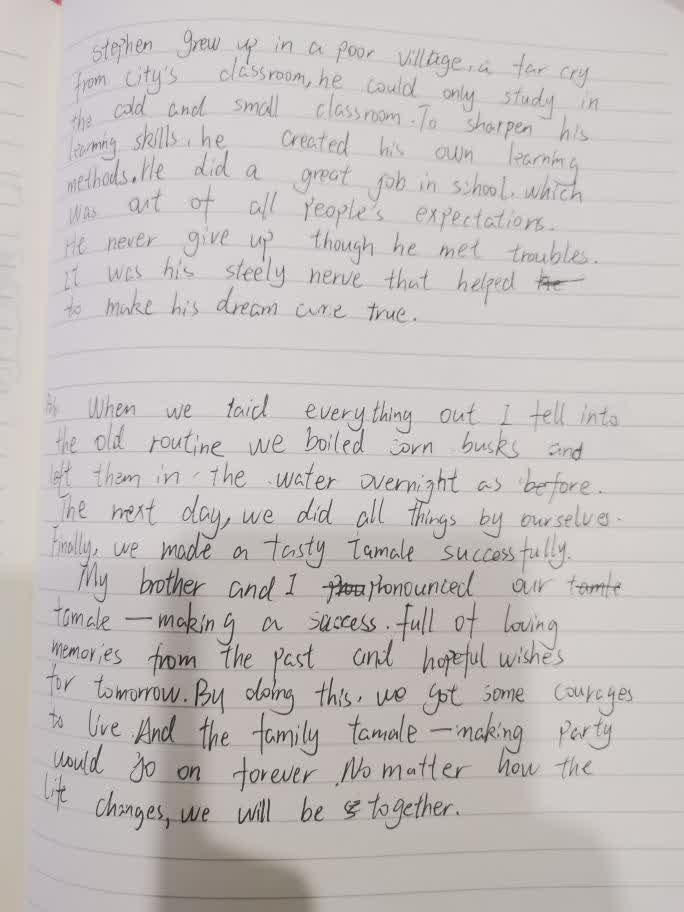 Stephen grew up in a poor village, a far cry
from city's classroom, he could only study in
the cold and small classroom. To sharpen his
learning skills, he created his own learning
methods. He did a great job in school, which
was out of all people's expectations.
He never give up though he met troubles.
It was his steely nerve that helped he
to make his dream come true.
When we laid everything out I fell into
the old routine we boiled corn busks and
left them in the water overnight as before.
The next day, we did all things by ourselves.
Finally, we made a tasty tamale successfully.
My brother and I pronounced our tamle
tamale—making a success. full of loving
memories from the past and hopeful wishes
for tomorrow. By doing this, we got some courages
to live. And the family tamale—making party
would go on forever. No matter how the
life changes, we will be together.